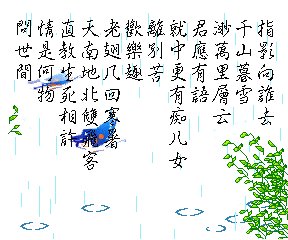 問世間
情是何物
直教生死相許
天南地北雙飛客
老翅几回寒暑
歡樂趣
離別苦
就中更有痴儿女
君應有語
渺萬里層云
千山暮雪
指影向誰去